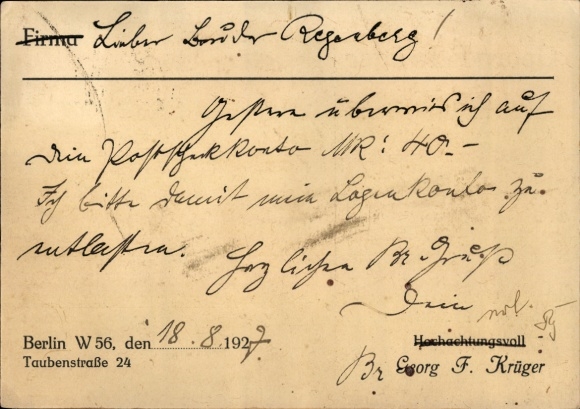 Firma Lieber Bruder Regensberg!
Gestern überwies ich auf
dein Postscheckkonto Mk: 40.-
Ich bitte damit mein Logenkonto zu
entlasten.
Herzlichen Br. Gruß
Dein
Berlin W 56, den 18. 8. 1927
Hochachtungsvoll
Taubenstraße 24
Br Georg F. Krüger